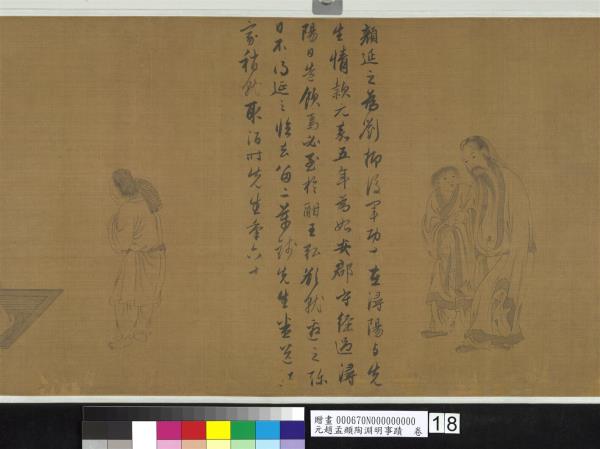 顏延之為劉柳後軍功十在潯陽与先
生情款元嘉五年為始安郡守經過潯
陽日造飲焉必至於酣王弘欲就邀之弥
日不得延之臨去留二萬錢先生悉送付
家稍就取酒時先生年六十
贈畫 000670N000000000
元趙孟頫陶淵明事蹟 卷
18